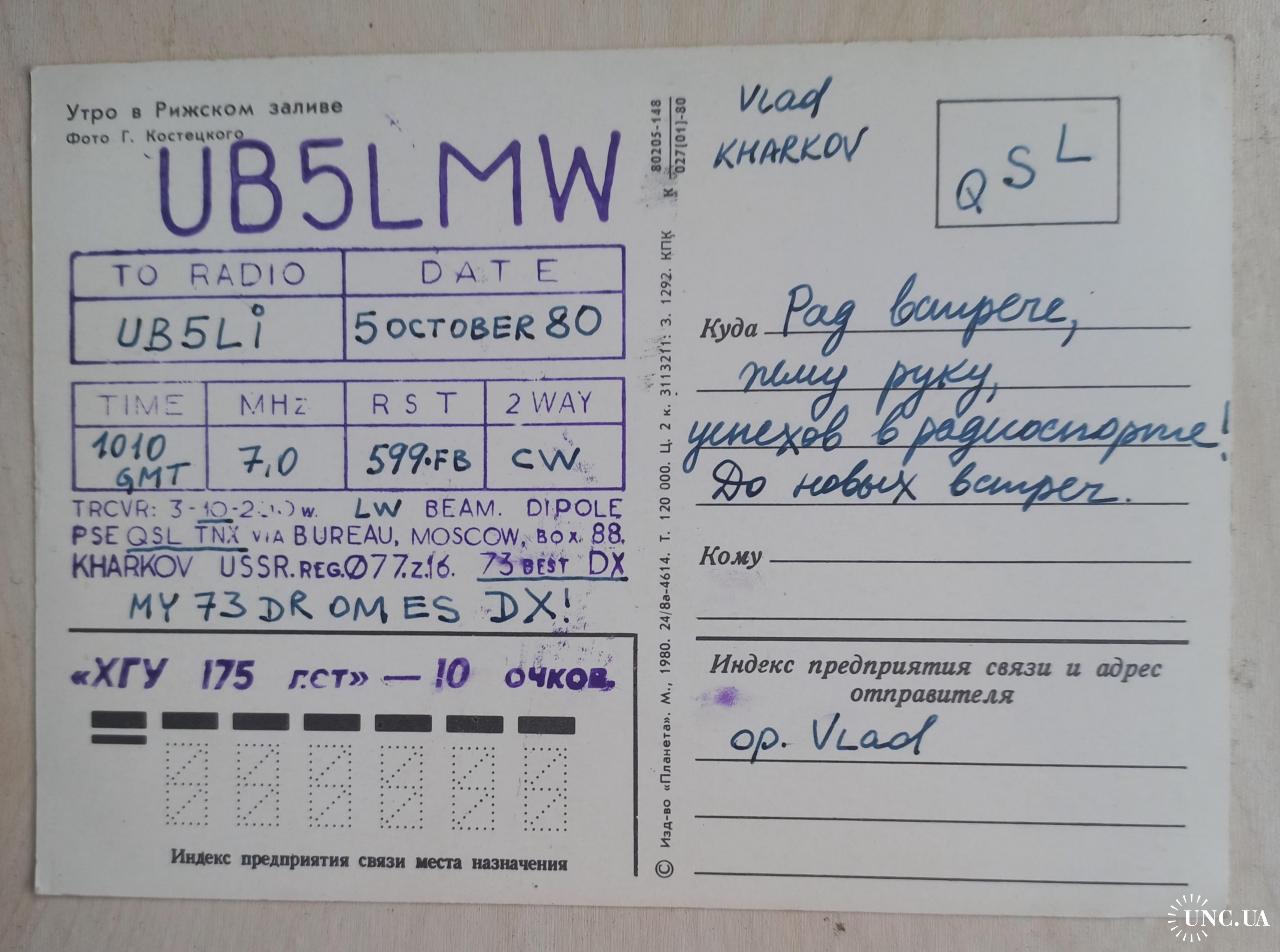 Утро в Рижском заливе
Фото Г. Костецкого
UB5LMW
TO RADIO DATE
UB5Li 5 OCTOBER 80
TIME MHz RST 2 WAY
1010 GMT 7,0 599·FB CW
TRCVR: 3-10- w. LW BEAM. DIPOLE
PSE QSL TNX VIA BUREAU, MOSCOW, BOX. 88.
KHARKOV USSR. REG.Ø77.Z.16. 73 BEST DX
MY 73 DR OM ES DX!
«ХГУ 175 ЛЕТ» — 10 ОЧКОВ.
Индекс предприятия связи места назначения
К 80205-148 027(01)-80
© Изд-во «Планета». М., 1980. 24/8а-4614. Т. 120 000. Ц. 2 к. 3113211: З. 1292. КПК
Vlad
KHARKOV
QSL
Куда Рад встрече,
жму руку,
успехов в радиоспорте!
До новых встреч.
Кому
Индекс предприятия связи и адрес
отправителя
op. Vlad
UNC.UA